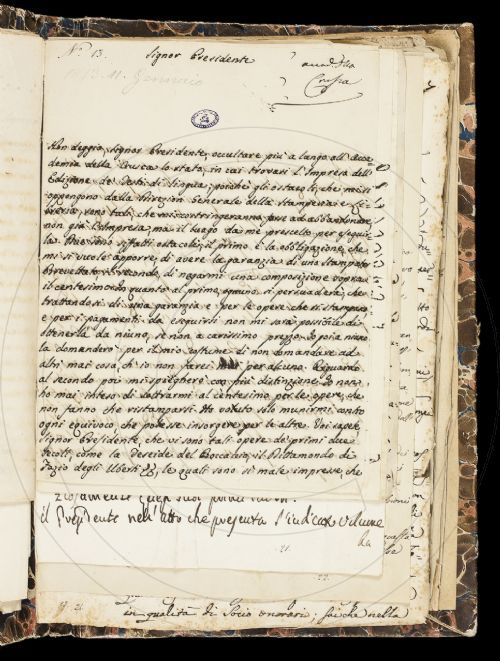 Nº 13.
Signor Presidente
13. 11. Gennaio
Crusca
Non deggio, Signor Presidente, occultare più a lungo all' Acca-
demia della Crusca lo stato, in cui trovasi l'Impresa dell'
Edizione de' Testi di Lingua; poichè gli ostacoli, che mi si
oppongono dalla Direzion Generale della Stamperia e Li-
breria, sono tali, che mi costringeranno forse ad abbandonare
non già l'Impresa, ma il luogo da me prescelto per eseguir-
la. Due sono siffatti ostacoli; il primo è la obbligazione, che
mi si vuole apporre, di avere la garanzia di uno stampator
Brevettato; il secondo, di negarmi una composizione sopra
il centesimo. In quanto al primo, ognuno si persuaderà, che
trattandosi di una garanzia e per le opere che si stampano
e per i pagamenti da eseguirsi non mi sarà possibile di
ottenerla da niuno, se non a carissimo prezzo. Io poi non
la domanderò per il mio costume di non domandare ad
altri mai cosa, ch'io non farei per alcuno. Riguardo
al secondo poi mi spiegherò con più distinzione. Io non
ho mai inteso di sottrarmi al centesimo per le opere, che
non fanno che ristamparsi. Ho voluto solo munirmi contro
ogni equivoco, che potesse insorgere per le altre. Voi sapete,
Signor Presidente, che vi sono tali opere de' primi due
secoli, come la Teseide del Boccaccio, il Dittamondo di
Fazio degli Uberti &c, le quali sono sì male impresse, che
il Presidente nell' atto che presenta l'indicato volume
ha
21.
22.
in qualità di Socio onorario; sicchè nella